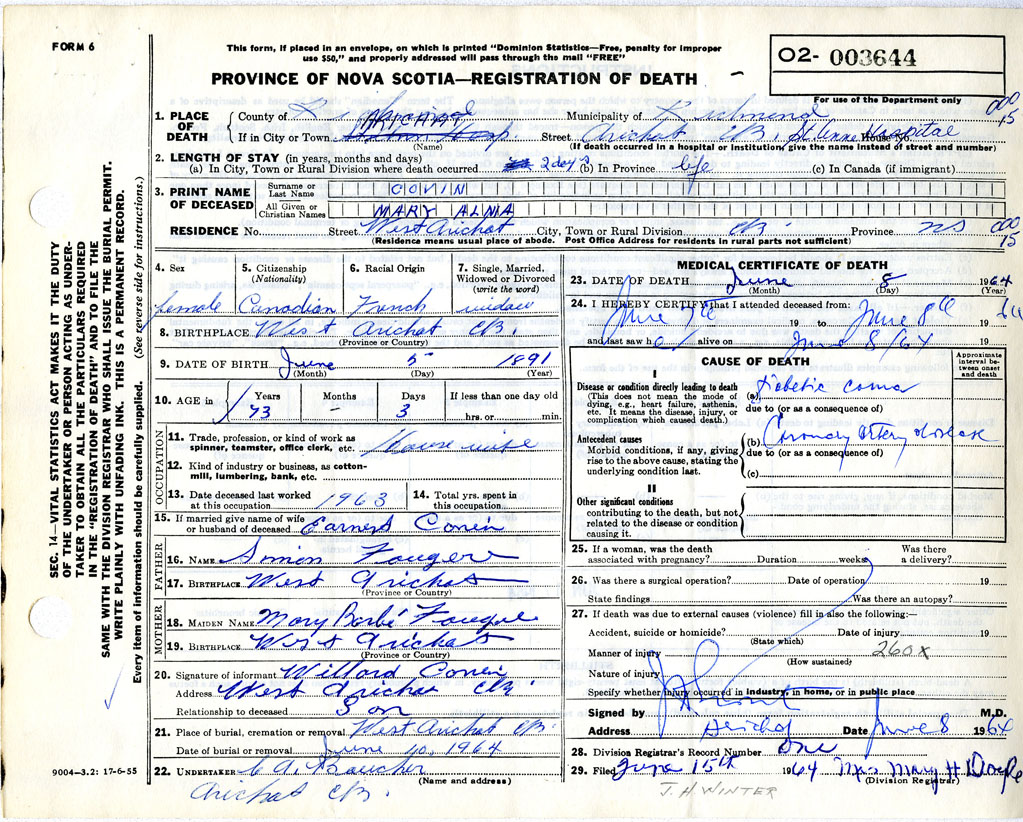 FORM 6
This form, if placed in an envelope, on which is printed "Dominion Statistics—Free, penalty for improper
use $50," and properly addressed will pass through the mail "FREE"
PROVINCE OF NOVA SCOTIA—REGISTRATION OF DEATH
O2- 003644
For use of the Department only
1. PLACE OF DEATH County of Richmond Municipality of Richmond 000 15
If in City or Town ARICHAT Street Arichat CB. St. Anne Hospital House No.
(Name) (If death occurred in a hospital or institution, give the name instead of street and number)
2. LENGTH OF STAY (in years, months and days)
(a) In City, Town or Rural Division where death occurred 2 days (b) In Province life (c) In Canada (if immigrant)
3. PRINT NAME OF DECEASED
Surname or Last Name CONIN
All Given or Christian Names MARY ALMA
RESIDENCE No. Street West Arichat City, Town or Rural Division CB. Province NS 000 15
(Residence means usual place of abode. Post Office Address for residents in rural parts not sufficient)
SEC. 14—VITAL STATISTICS ACT MAKES IT THE DUTY
OF THE UNDERTAKER OR PERSON ACTING AS UNDER-
TAKER TO OBTAIN ALL THE PARTICULARS REQUIRED
IN THE "REGISTRATION OF DEATH" AND TO FILE THE
SAME WITH THE DIVISION REGISTRAR WHO SHALL ISSUE THE BURIAL PERMIT.
WRITE PLAINLY WITH UNFADING INK. THIS IS A PERMANENT RECORD.
Every item of information should be carefully supplied. (See reverse side for instructions.)
4. Sex 5. Citizenship (Nationality) 6. Racial Origin 7. Single, Married, Widowed or Divorced (write the word)
female Canadian French widow
8. BIRTHPLACE West Arichat CB.
(Province or Country)
9. DATE OF BIRTH June 5 1891
(Month) (Day) (Year)
10. AGE in Years 73 Months – Days 3 If less than one day old hrs. or min.
OCCUPATION
11. Trade, profession, or kind of work as spinner, teamster, office clerk, etc. House wife
12. Kind of industry or business, as cotton-mill, lumbering, bank, etc.
13. Date deceased last worked at this occupation 1963 14. Total yrs. spent in this occupation
15. If married give name of wife or husband of deceased Earnest Conin
FATHER
16. NAME Simon Fougere
17. BIRTHPLACE West Arichat
(Province or Country)
MOTHER
18. MAIDEN NAME Mary Barbé Fougere
19. BIRTHPLACE West Arichat
(Province or Country)
20. Signature of informant Willard Conin
Address West Arichat CB.
Relationship to deceased Son
21. Place of burial, cremation or removal West Arichat CB.
Date of burial or removal June 10, 1964
22. UNDERTAKER C A Boucher
(Name and address)
Arichat CB.
9004—3.2: 17-6-55
MEDICAL CERTIFICATE OF DEATH
23. DATE OF DEATH June 8 1964
(Month) (Day) (Year)
24. I HEREBY CERTIFY that I attended deceased from:
June 7th 19 to June 8th 19 64
and last saw her alive on June 8/64 19
CAUSE OF DEATH
Approximate interval between onset and death
I
Disease or condition directly leading to death
(This does not mean the mode of dying, e.g., heart failure, asthenia, etc. It means the disease, injury, or complication which caused death.)
(a) Diabetic coma
due to (or as a consequence of)
Antecedent causes
Morbid conditions, if any, giving rise to the above cause, stating the underlying condition last.
(b) Coronary artery disease
due to (or as a consequence of)
(c)
II
Other significant conditions
contributing to the death, but not related to the disease or condition causing it.
25. If a woman, was the death associated with pregnancy? Duration weeks Was there a delivery?
26. Was there a surgical operation? Date of operation 19
State findings Was there an autopsy?
27. If death was due to external causes (violence) fill in also the following:—
Accident, suicide or homicide? Date of injury 19
(State which)
Manner of injury 260x
(How sustained)
Nature of injury
Specify whether injury occurred in industry, in home, or in public place
Signed by M.D.
Address Arichat Date June 8 1964
28. Division Registrar's Record Number One
29. Filed June 15th 1964 Mrs Mary H Doyle
(Division Registrar)
J. H WINTER